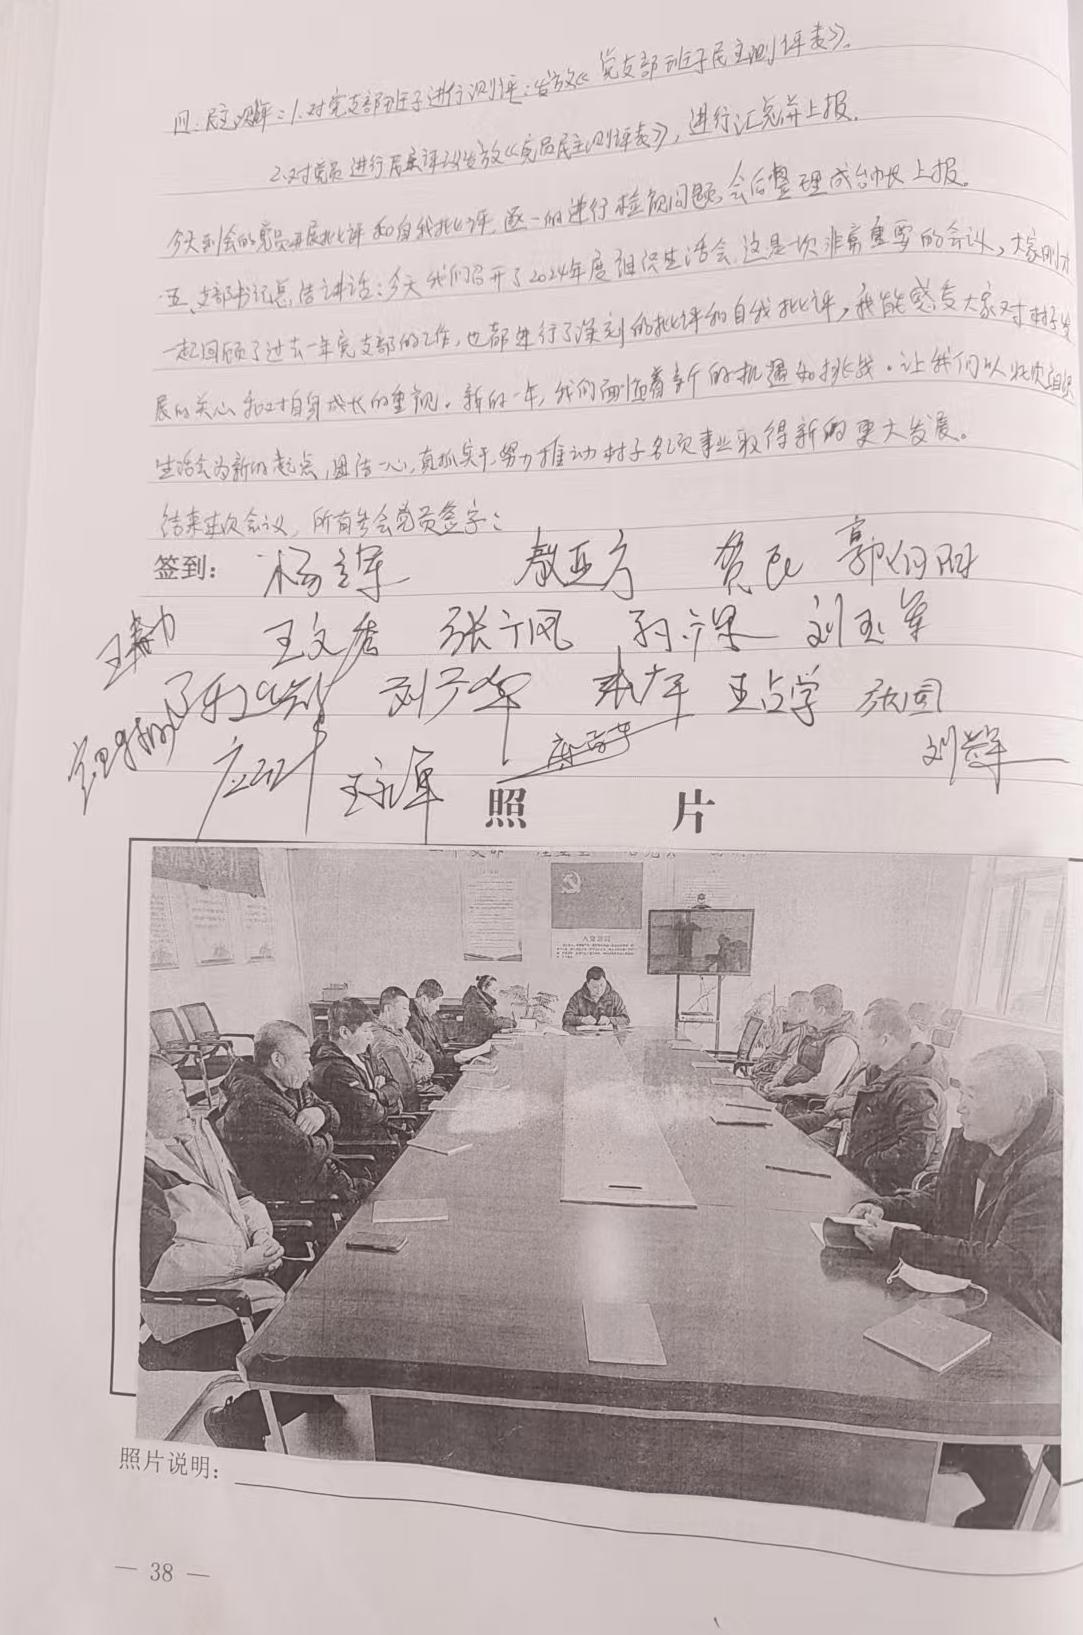 四.民主测评:1.对党支部班子进行测评:发放《党支部班子民主测评表》。
2.对党员进行民主评议发放《党员民主测评表》,进行汇总并上报.
今天到会的党员开展批评和自我批评,逐一的进行检视问题,会后整理成台帐上报。
五、支部书记总结讲话:今天我们召开了2024年度组织生活会,这是一次非常重要的会议,大家刚才
一起回顾了过去一年党支部的工作,也都进行了深刻的批评和自我批评,我能感受大家对村子发
展的关心和对自身成长的重视。新的一年,我们面临着新的机遇和挑战。让我们以此次组织
生活会为新的起点,团结一心,真抓实干,努力推动村子各项事业取得新的更大发展。
结束本次会议,所有参会党员签字:
签到:
王文 张广风 刘玉军
刘广军 王占学 张国
王永军 刘军
照 片
入党誓词
照片说明:
— 38 —